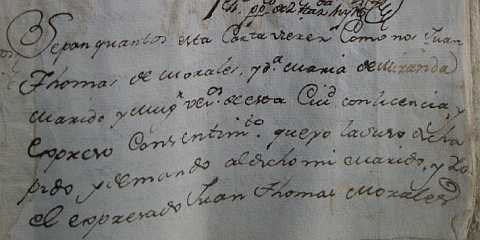 Sepan quantos esta Carta vieren Como nos Juan
Thomas de Morales, y d.ª Maria de Miranda
marido y mug.r vez.os de esta Ciu.d con licencia, y
expreso Consentim.to que yo la suso dicha
pido y demando al dicho mi marido, y Yo
el expresado Juan Thomas Morales